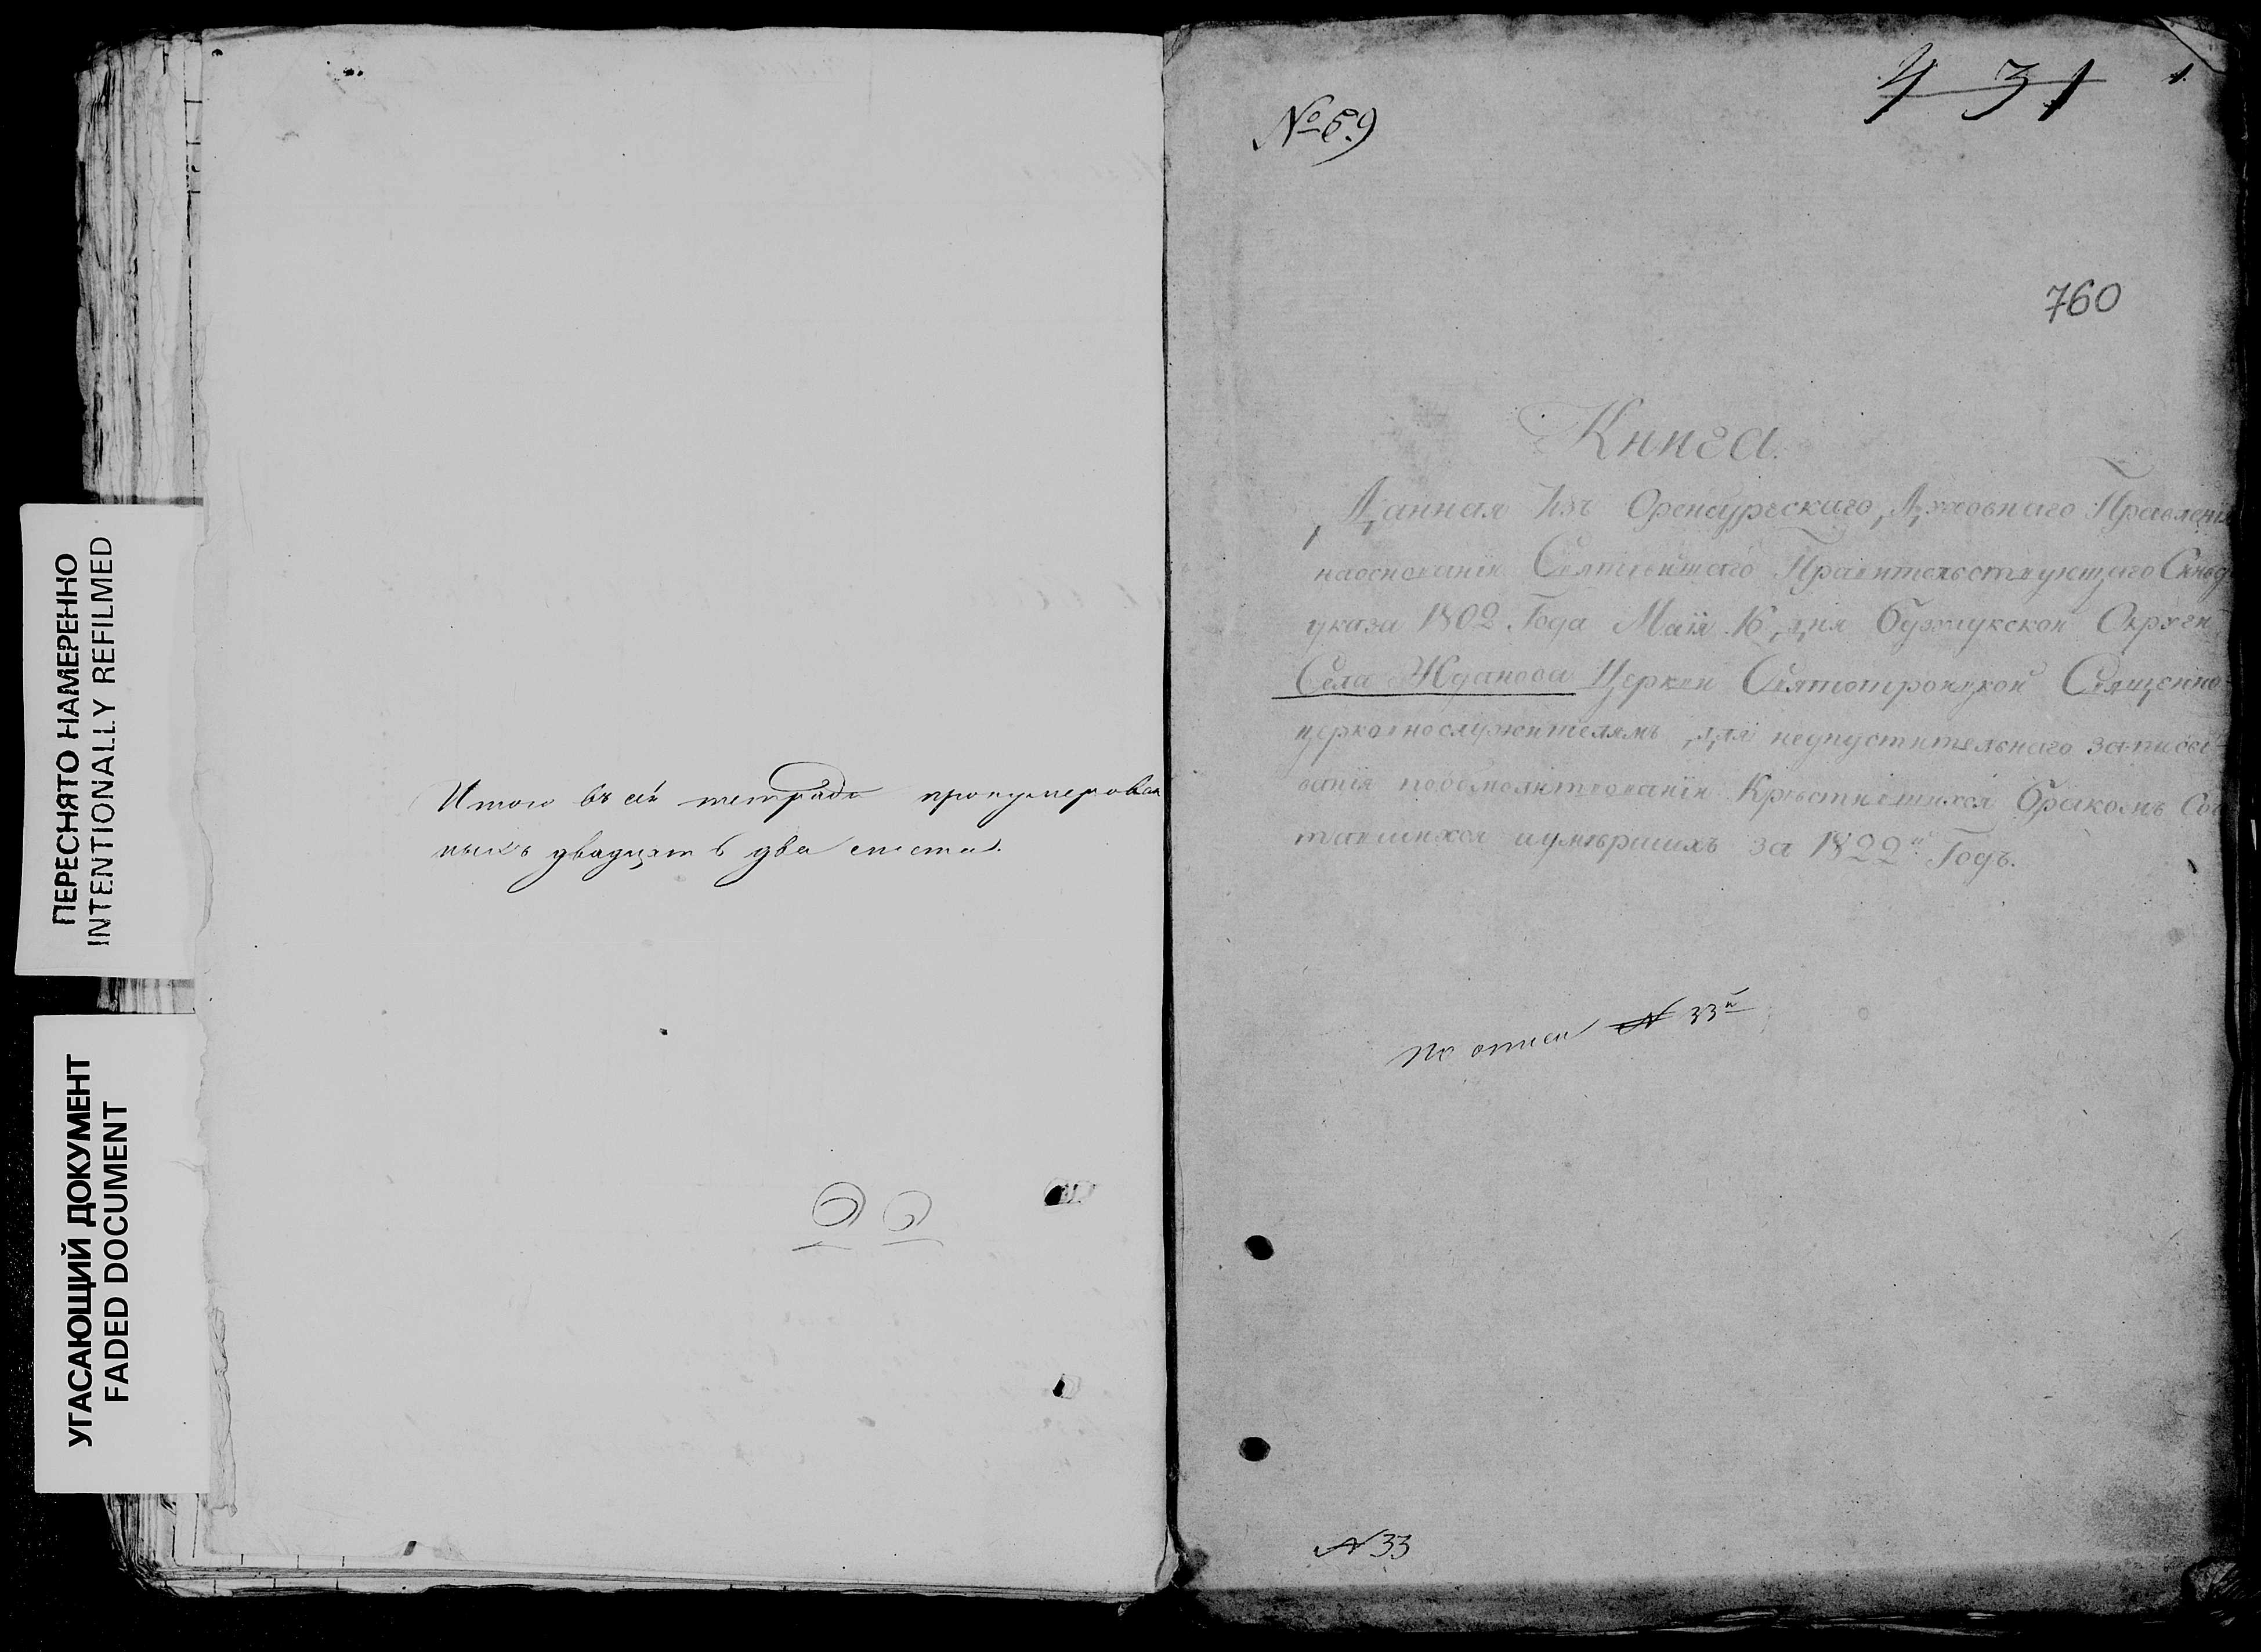 ПЕРЕСНЯТО НАМЕРЕННО
INTENTIONALLY REFILMED
УГАСАЮЩИЙ ДОКУМЕНТ
FADED DOCUMENT
Итого въ сей тетради пронумерован
ныхъ двадцать два листа.
22
4 31 1.
№ 69
760
Книга.
Данная Изъ Оренбургскаго Духовнаго Правленія
наоснованіи Святѣйшаго Правительствующаго Синод
указа 1802. Года Маія 16 дня Бузулукской Округи
Села Жданова Церкви Святотроицкой Священно-
церковнослужителямъ для неупустительнаго записы-
ванія помолитвованіи Крѣстившихся Бракомъ Соч
тавшихся иумѣршихъ за 1822й Годъ.
по описи № 33й
№ 33